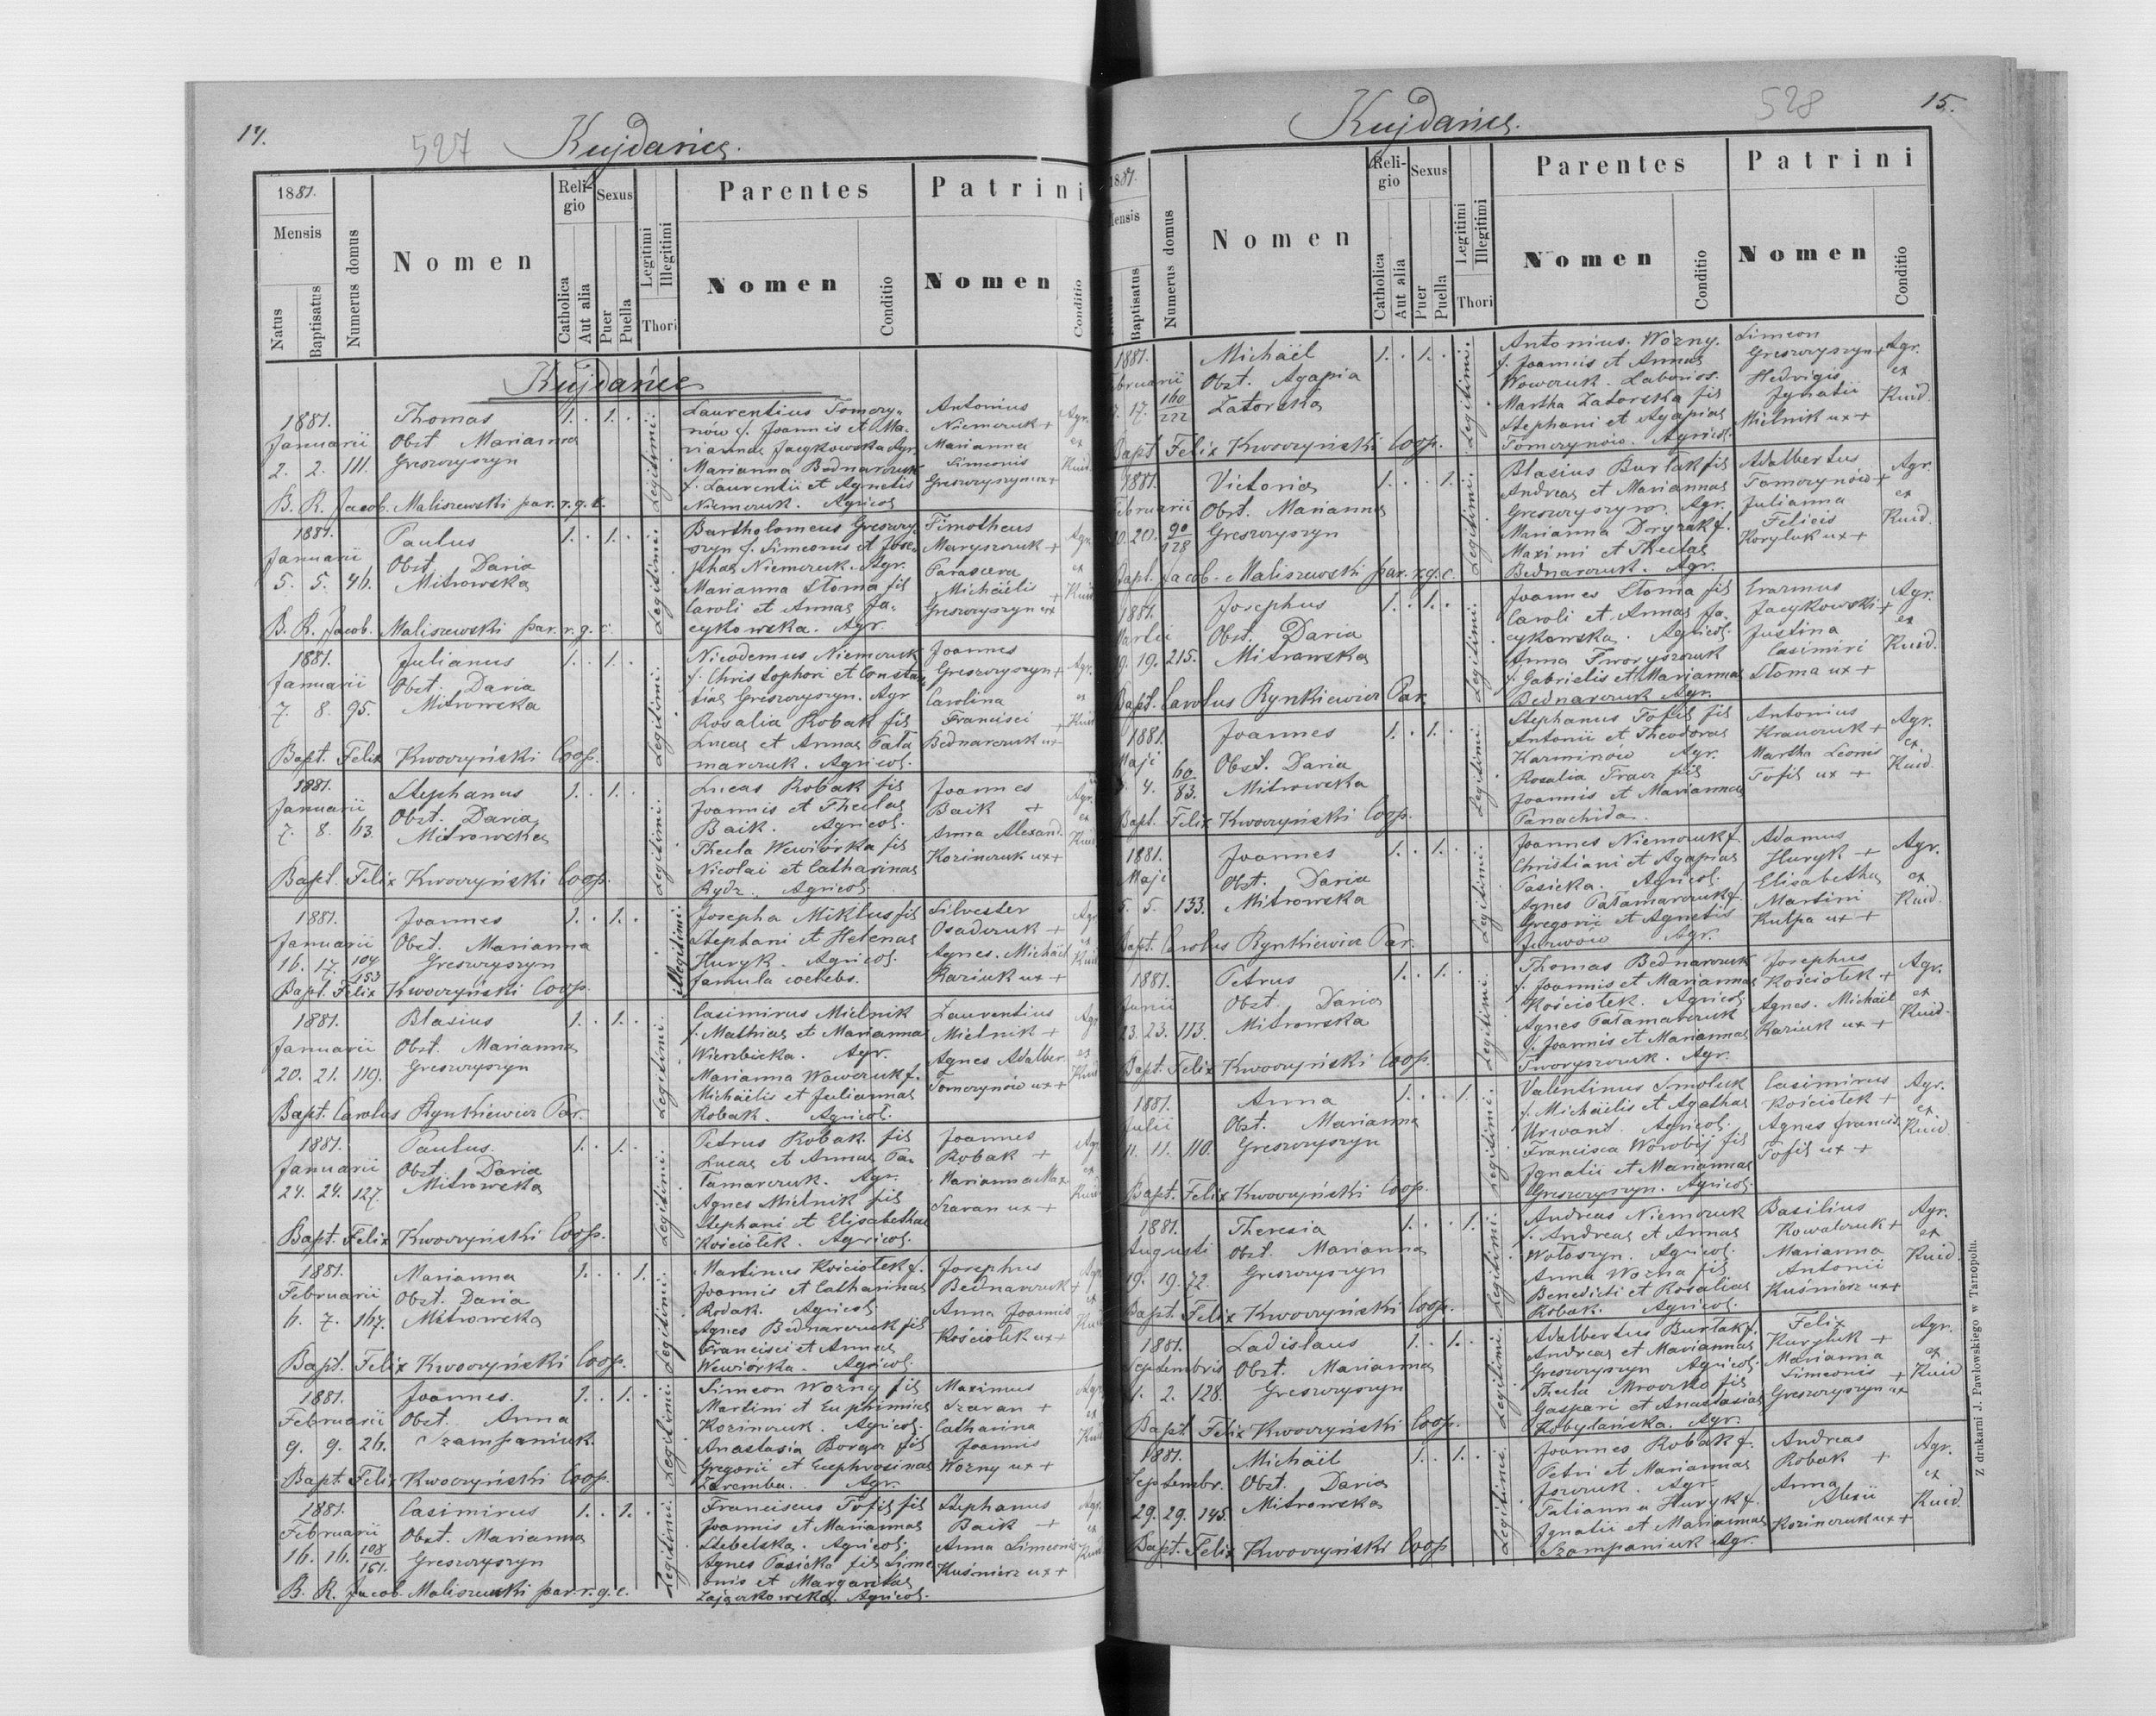 14.
527
Kujdańce.
1881.
Mensis
Natus
Baptisatus
Numerus domus
Nomen
Religio
Catholica
Aut alia
Sexus
Puer
Puella
Legitimi
Illegitimi
Thori
Parentes
Nomen
Conditio
Patrini
Nomen
Conditio
Kujdańce
1881.
Januarii
2. 2. 111.
Thomas
Obst. Marianna
Greszczyszyn
1. 1.
Legitimi.
Laurentius Tomczy-
nów f. Joannis et Ma-
riannae Jacykowska Agr.
Marianna Bednarczuk
f. Laurentii et Agnetis
Niemczuk. Agricol.
Antonius
Niemczuk +
Marianna
Simeonis
Greszczyszyn ux +
Agr.
ex
Kuid.
B. R. Jacob. Maliszewski par. r. g. c.
1881.
Januarii
5. 5. 46.
Paulus
Obst. Daria
Mitrowska
1. 1.
Legitimi.
Bartholomeus Greszczy-
szyn f. Simeonis et Jose-
phae Niemczuk. Agr.
Marianna Stoma fil
Caroli et Annae Ja-
cykowska. Agr.
Timotheus
Maryszczuk +
Parascera
Michäelis
Greszczyszyn ux +
Agr.
ex
Kuid
B. R. Jacob. Maliszewski par. r. g. c.
1881.
Januarii
7. 8. 95.
Julianus
Obst. Daria
Mitrowska
1. 1.
Legitimi.
Nicodemus Niemczuk
f. Christophori et Constan
tiae Greszczyszyn. Agr
Rosalia Robak fil
Lucae et Annae Pała
marczuk. Agricol.
Joannes
Greszczyszyn +
Carolina
Francisci
Bednarczuk ux +
Agr.
ex
Kuid
Bapt. Felix Kwoczyński Coop.
1881.
Januarii
7. 8. 63.
Stephanus
Obst. Daria
Mitrowska
1. 1.
Legitimi.
Lucas Robak fil
Joannis et Theclae
Baik. Agricol.
Thecla Wewiórka fil
Nicolai et Catharinae
Rydz. Agricol.
Joannes
Baik +
Anna Alexand.
Kozinczuk ux +
Agr.
ex
Kuid
Bapt. Felix Kwoczyński Coop.
1881.
Januarii
16. 17. 104/153
Joannes
Obst. Marianna
Greszczyszyn
1. 1.
illegitimi.
Josepha Miklus fil
Stephani et Helenae
Huryk. Agricol.
famula coelebs.
Silvester
Osadczuk +
Agnes. Michäel
Kaziuk ux +
Agr
ex
Kuid
Bapt. Felix Kwoczyński Coop.
1881.
Januarii
20. 21. 119.
Blasius
Obst. Marianna
Greszczyszyn
1. 1.
Legitimi.
Casimirus Mielnik
f. Mathiae et Mariannae
Wierzbicka. Agr.
Marianna Wawczuk f.
Michäelis et Juliannae
Robak. Agricol.
Laurentius
Mielnik +
Agnes Adalber.
Tomczynów ux +
Agr
ex
Kuid
Bapt. Carolus Rynkiewicz Par.
1881.
Januarii
24. 24. 127.
Paulus.
Obst. Daria
Mitrowska
1. 1.
Legitimi.
Petrus Robak fil
Lucae et Annae Pa-
łamarczuk. Agr.
Agnes Mielnik fil
Stephani et Elisabethae
Kościołek. Agricol.
Joannes
Robak +
Marianna Max.
Szaran ux +
Agr
ex
Kuid
Bapt. Felix Kwoczyński Coop.
1881.
Februarii
6. 7. 167.
Marianna
Obst. Daria
Mitrowska
1. 1.
Legitimi.
Martinus Kościołek f.
Joannis et Catharinae
Robak. Agricol.
Agnes Bednarczuk fil
Francisci et Annae
Wewiórka. Agricol.
Josephus
Bednarczuk +
Anna Joannis
Kościołek ux +
Agr
ex
Kuid
Bapt. Felix Kwoczyński Coop.
1881.
Februarii
9. 9. 26.
Joannes.
Obst. Anna
Szampaniuk
1. 1.
Legitimi.
Simeon Woźny fil
Martini et Euphimiae
Kozinczuk. Agricol.
Anastasia Borga fil
Gregorii et Euphrosinae
Zaremba. Agr.
Maximus
Szaran +
Catharina
Joannis
Woźny ux +
Agr
ex
Kuid
Bapt. Felix Kwoczyński Coop.
1881.
Februarii
16. 16. 108/161.
Casimirus
Obst. Marianna
Greszczyszyn
1. 1.
Legitimi.
Franciscus Tofil fil
Joannis et Mariannae
Stebelska. Agricol.
Agnes Pasieka fil Sime
onis et Margaritae
Zajączkowska. Agricol.
Stephanus
Baik +
Anna Simeonis
Kuśnierz ux +
Agr.
ex
Kuid
B. R. Jacob. Maliszewski par. r. g. c.
15.
528
Kujdańce.
1881.
Mensis
Baptisatus
Numerus domus
Nomen
Religio
Catholica
Aut alia
Sexus
Puer
Puella
Legitimi
Illegitimi
Thori
Parentes
Nomen
Conditio
Patrini
Nomen
Conditio
1881.
Februarii
17. 160/222
Michäel
Obst. Agapia
Zatorska
1. 1.
Legitimi.
Antonius. Woźny.
f. Joannis et Annae
Wowczuk. Laborios.
Martha Zatorska fil
Stephani et Agapiae
Tomczynów. Agricol.
Simeon
Greszczyszyn +
Hedvigis
Ignatii
Mielnik ux +
Agr.
ex
Kuid.
Bapt. Felix Kwoczyński Coop.
1881.
Februarii
20. 20. 90/128
Victoria
Obst. Marianna
Greszczyszyn
1. 1.
Legitimi.
Blasius Burłak fil
Andreae et Mariannae
Greszczyszyn. Agr.
Marianna Dryzak f.
Maximi et Theclae
Bednarczuk. Agr.
Adalbertus
Tomczynów +
Julianna
Felicis
Koryluk ux +
Agr.
ex
Kuid.
Bapt. Jacob. Maliszewski par. r. g. c.
1881.
Martii
19. 19. 215.
Josephus
Obst. Daria
Mitrowska
1. 1.
Legitimi.
Joannes Stoma fil
Caroli et Annae Ja-
cykowska. Agricol.
Anna Tworyszczuk
f. Gabrielis et Mariannae
Bednarczuk Agr.
Erazmus
Jacykowski +
Justina
Casimiri
Stoma ux +
Agr.
ex
Kuid.
Bapt. Carolus Rynkiewicz Par.
1881.
Maji
4. 60/83.
Joannes
Obst. Daria
Mitrowska
1. 1.
Legitimi.
Stephanus Tofil fil
Antonii et Theodorae
Karminów Agr.
Rosalia Tracz fil
Joannis et Mariannae
Panachida.
Antonius
Krawczuk +
Martha Leonis
Tofil ux +
Agr.
ex
Kuid.
Bapt. Felix Kwoczyński Coop.
1881.
Maji
5. 5. 133.
Joannes
Obst. Daria
Mitrowska
1. 1.
Legitimi.
Joannes Niemczuk f.
Christiani et Agapiae
Pasieka. Agricol.
Agnes Pałamarczuk f.
Gregorii et Agnetis
Jurwów Agr.
Adamus
Huryk +
Elisabetha
Martini
Kulpa ux +
Agr.
ex
Kuid.
Bapt. Carolus Rynkiewicz Par.
1881.
Junii
23. 23. 113.
Petrus
Obst. Daria
Mitrowska
1. 1.
Legitimi.
Thomas Bednarczuk
f. Joannis et Mariannae
Kościołek. Agricol.
Agnes Pałamarczuk
f. Joannis et Mariannae
Tworyszczuk. Agr.
Josephus
Kościołek +
Agnes. Michäel
Kaziuk ux +
Agr.
ex
Kuid.
Bapt. Felix Kwoczyński Coop.
1881.
Julii
11. 11. 110.
Anna
Obst. Marianna
Greszczyszyn
1. 1.
Legitimi.
Valentinus Smoluk
f. Michäelis et Agathae
Urwand. Agricol.
Francisca Worobij fil
Ignatii et Mariannae
Greszczyszyn. Agricol.
Casimirus
Kościołek +
Agnes francis.
Tofil ux +
Agr.
ex
Kuid.
Bapt. Felix Kwoczyński Coop.
1881.
Augusti
19. 19. 72.
Theresia
Obst. Marianna
Greszczyszyn
1. 1.
Legitimi.
Andreas Niemczuk
f. Andreae et Annae
Wołoszyn. Agricol.
Anna Woźna fil
Benedicti et Rosaliae
Robak. Agricol.
Basilius
Kowalczuk +
Marianna
Antonii
Kuśnierz ux +
Agr.
ex
Kuid.
Bapt. Felix Kwoczyński Coop.
1881.
Septembris
1. 2. 128.
Ladislaus
Obst. Marianna
Greszczyszyn
1. 1.
Legitimi.
Adalbertus Burłak f.
Andreae et Mariannae
Greszczyszyn Agricol.
Thecla Mroczko fil
Gaspari et Anastasiae
Kobylańska. Agr.
Felix
Kuryluk +
Marianna
Simeonis +
Greszczyszyn ux
Agr.
ex
Kuid
Bapt Felix Kwoczyński Coop.
1881.
Septembr.
29. 29. 145.
Michäil
Obst. Daria
Mitrowska
1. 1.
Legitimi.
Joannes Robak f.
Petri et Mariannae
Jszczuk. Agr.
Tatianna Huryk f.
Ignatii et Mariannae
Szampaniuk Agr.
Andreas
Robak +
Anna
Alexii
Kozinczuk ux +
Agr.
ex
Kuid.
Bapt. Felix Kwoczyński Coop
Z drukarni J. Pawłowskiego w Tarnopolu.